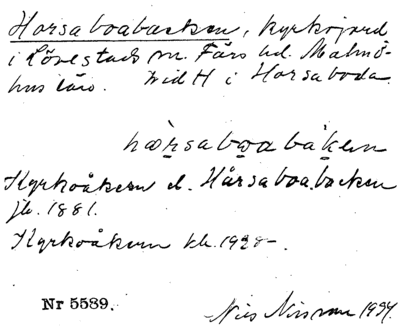 Horsaboabacken, kyrkojord
i Lövestads sn. Färs hd. Malmö-
hus län. vid H i Horsaboda.
hòrsaboabàken
Kyrkoåkern el. Hårsaboabacken
jb. 1881.
Kyrkoåkern kk. 1928-.
Nr 5589. Nils Nilsson 1934.